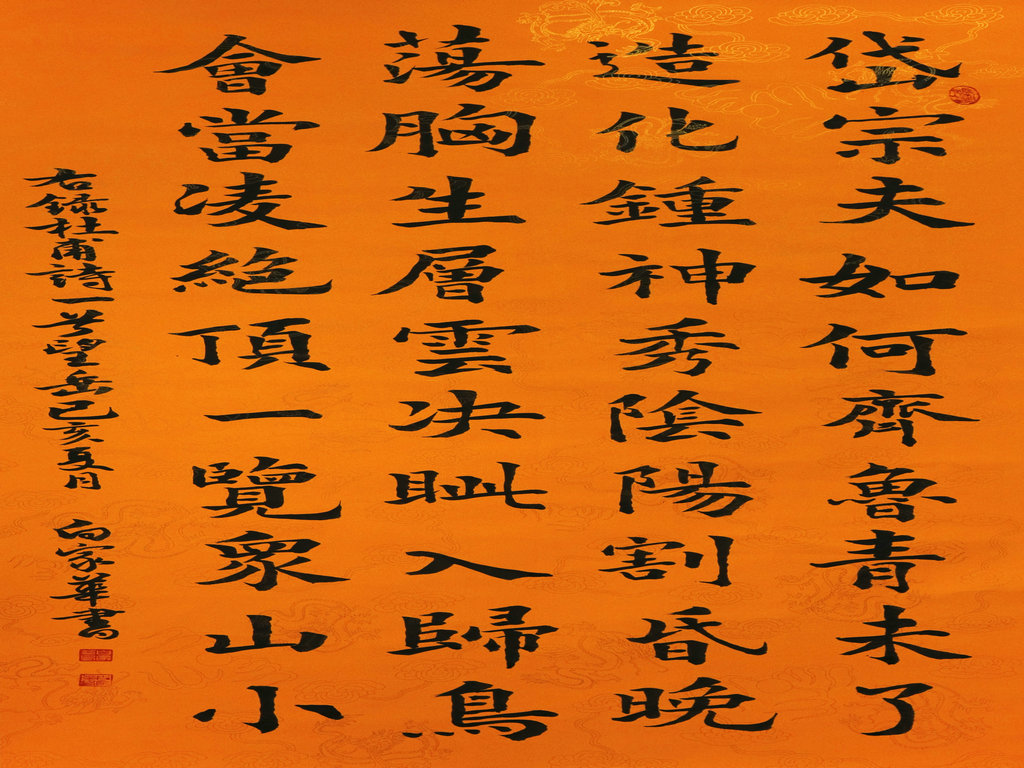 岱宗夫如何齊魯青未了
造化鍾神秀陰陽割昏晚
蕩胸生層雲决眦入歸鳥
會當凌絶頂一覽衆山小
右録杜甫詩一首望岳己亥夏月 向家華書